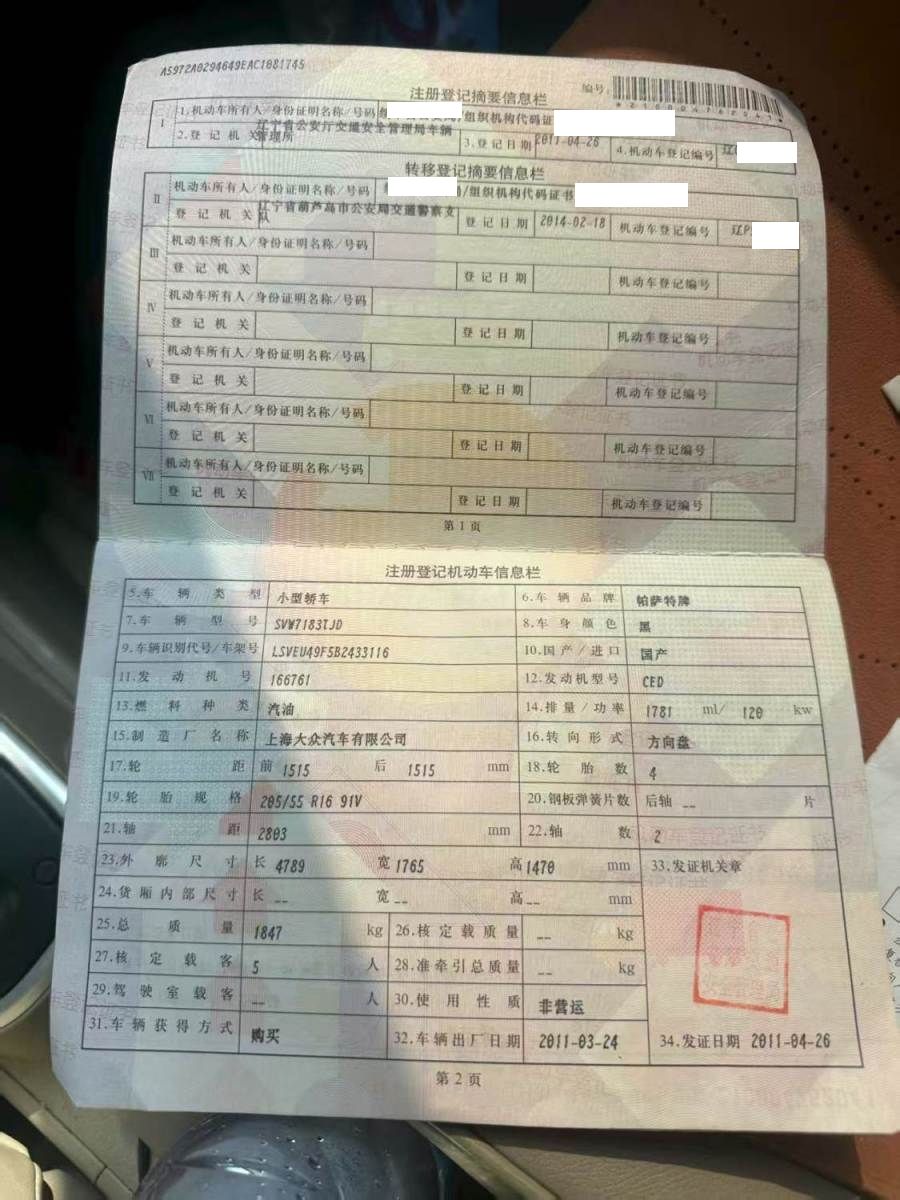 A5972A0294649EAC1081745
注册登记摘要信息栏
编号:
I
1.机动车所有人/身份证明名称/号码 /组织机构代码证
2.登记机关 辽宁省公安厅交通安全管理局车辆管理所 3.登记日期 2011-04-26 4.机动车登记编号 辽
转移登记摘要信息栏
II 机动车所有人/身份证明名称/号码 /组织机构代码证书
登记机关 辽宁省葫芦岛市公安局交通警察支队 登记日期 2014-02-18 机动车登记编号 辽P
III 机动车所有人/身份证明名称/号码
登记机关 登记日期 机动车登记编号
IV 机动车所有人/身份证明名称/号码
登记机关 登记日期 机动车登记编号
V 机动车所有人/身份证明名称/号码
登记机关 登记日期 机动车登记编号
VI 机动车所有人/身份证明名称/号码
登记机关 登记日期 机动车登记编号
VII 机动车所有人/身份证明名称/号码
登记机关 登记日期 机动车登记编号
第1页
注册登记机动车信息栏
5.车辆类型 小型轿车 6.车辆品牌 帕萨特牌
7.车辆型号 SVW7183TJD 8.车身颜色 黑
9.车辆识别代号/车架号 LSVEU49F5B2433116 10.国产/进口 国产
11.发动机号 166761 12.发动机型号 CED
13.燃料种类 汽油 14.排量/功率 1781 ml/ 120 kw
15.制造厂名称 上海大众汽车有限公司 16.转向形式 方向盘
17.轮距 前 1515 后 1515 mm 18.轮胎数 4
19.轮胎规格 205/55 R16 91V 20.钢板弹簧片数 后轴 -- 片
21.轴距 2803 mm 22.轴数 2
23.外廓尺寸 长 4789 宽 1765 高 1470 mm 33.发证机关章
24.货厢内部尺寸 长 -- 宽 -- 高 -- mm
25.总质量 1847 kg 26.核定载质量 -- kg
27.核定载客 5 人 28.准牵引总质量 -- kg
29.驾驶室载客 -- 人 30.使用性质 非营运
31.车辆获得方式 购买 32.车辆出厂日期 2011-03-24 34.发证日期 2011-04-26
第2页